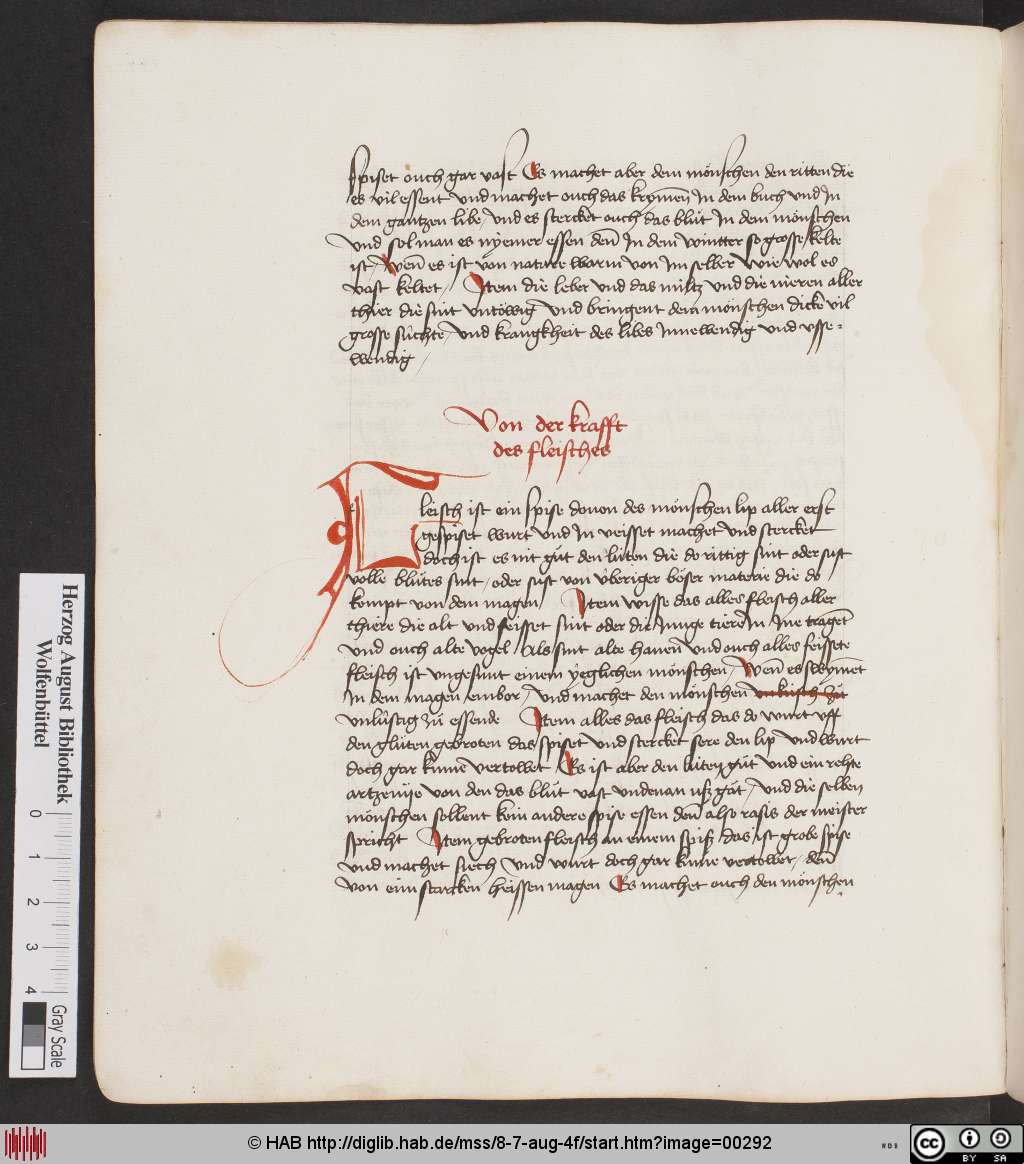 spiset ouch gar vast Es machet aber dem mönschen den ritten die
es vil essent vnd machet ouch das krÿmen̄ In dem buch vnd In
dem gantzen libe / vnd es stercket ouch das blůt In dem mönschen
vnd sol man es nÿemer essen den̄ In dem wintter so grosse kelte
ist / Wen̄ es ist von nature warm von Im selber wie wol es
vast keltet / Item die leber vnd das miltz vnd die nieren aller
thier die sint vntöwig vnd bringent dem mönschen dicke vil
grosse süchte / vnd krangkheit des libes Innewendig vnd vsse-
wendig /
Von der krafft
des fleisches
Fleisch ist ein spise douon des mönschen lip aller erst
gespiset wurt vnd In veisset machet vnd stercket
doch ist es nit gůt den lüten die do rittig sint oder sust
volle blůtes sint / oder sust von v̈beriger böser materie die do
kompt von dem magen / Item wisse das alles fleisch aller
thiere die alt vnd feisset sint oder die Junge tiere In Ine tragen̄t
vnd ouch alte vogel Als sint alte hanen̄ vnd ouch alles feissete
fleisch ist vngesunt einem ÿeglichen mönschen / Wen̄ es swÿm̄et
In dem magen embor / vnd machet den mönschen vnkusch zů
vnlüstig zů essende Item alles das fleisch das do wurt vff
den glůten gebroten das spiset vnd stercket sere den lip vnd wurt
doch gar kume vertowet Es ist aber den lüten gůt vnd ein rehte
artzenÿe von den das blůt vast vndenan vsz gät / vnd die selben
mönschen sollent kein andere spise essen den̄ also rasis der meister
spricht Item gebroten fleisch an einem spisz das ist grobe spise
vnd machet siech vnd wurt doch gar kume vertowet / den̄
von eim starcken heissen magen Es machet ouch den mönschen
Herzog August Bibliothek
Wolfenbüttel
0 1 2 3 4
Gray Scale
© HAB http://diglib.hab.de/mss/8-7-aug-4f/start.htm?image=00292
WDB
cc BY SA